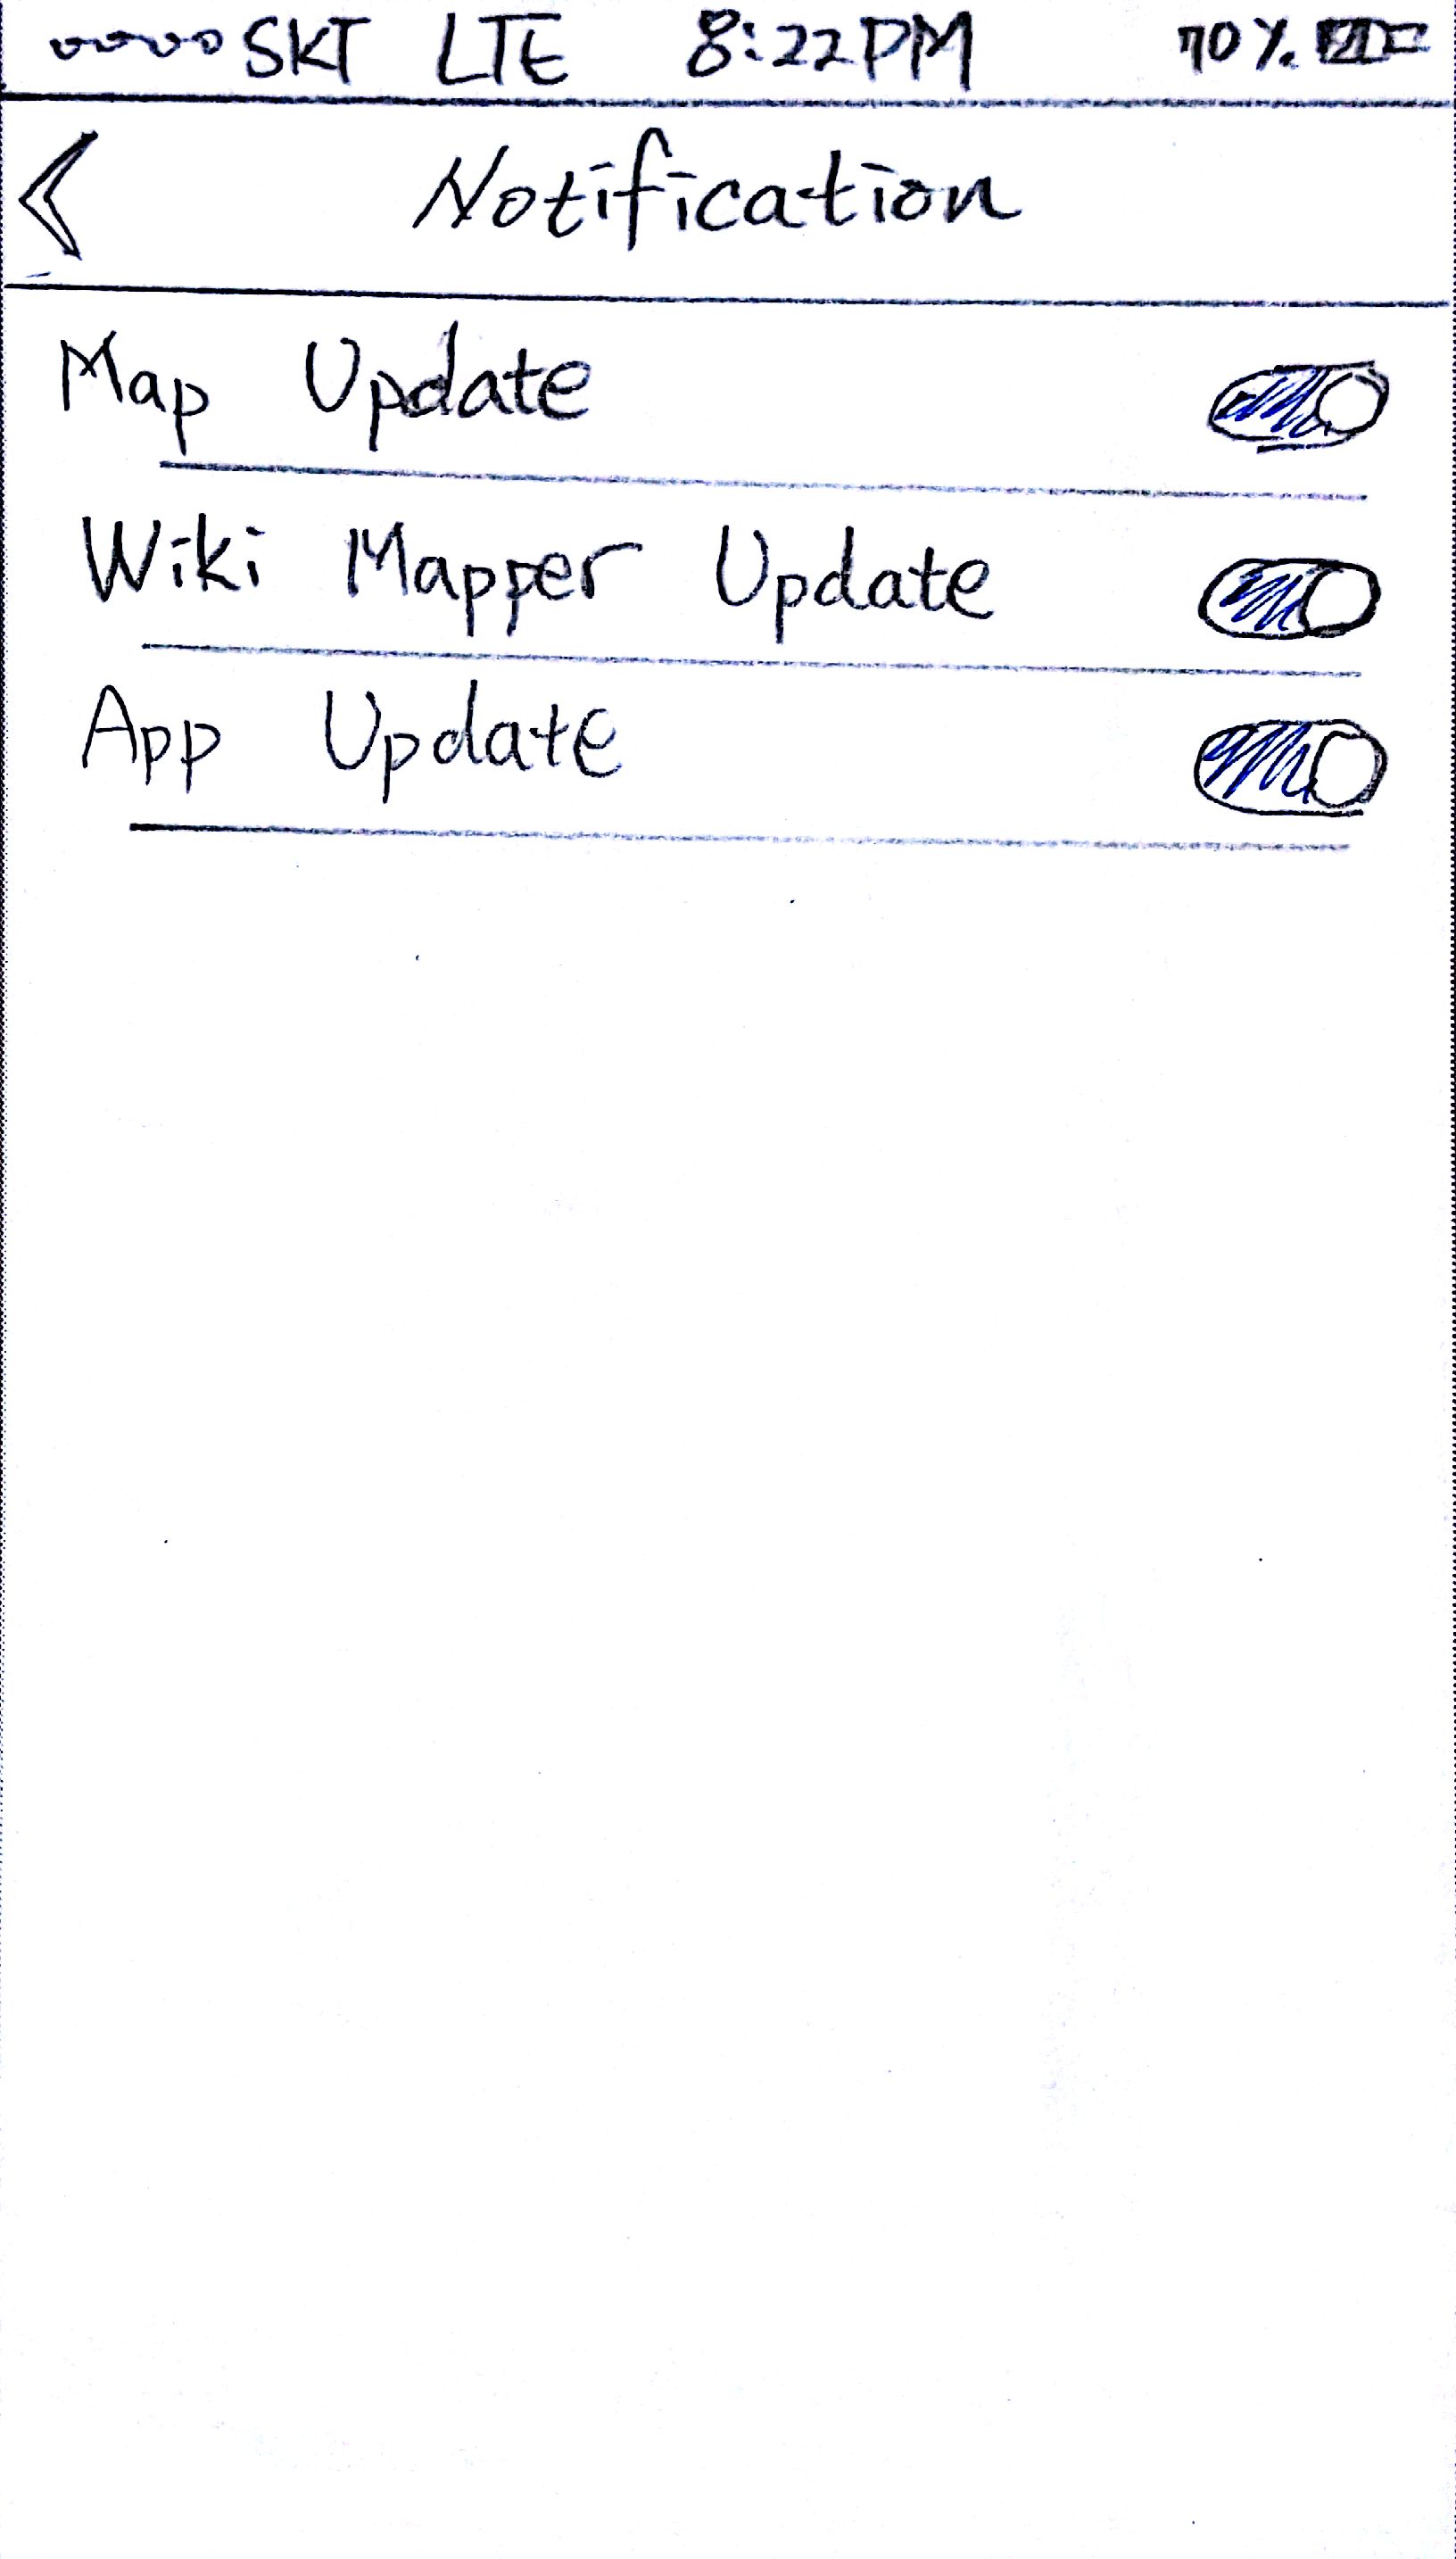 SKT LTE 8:22PM 70%
Notification
Map Update
Wiki Mapper Update
App Update